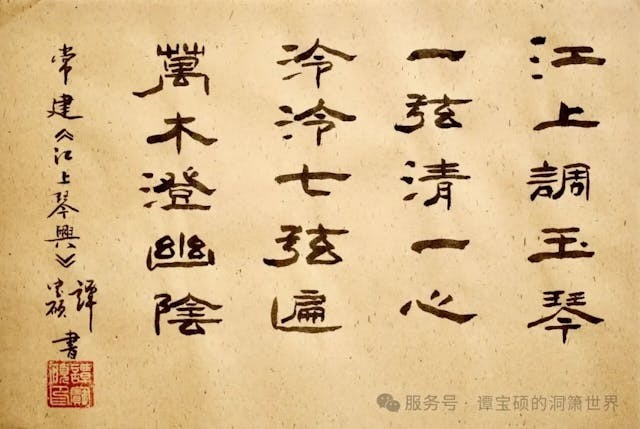 江上調玉琴
一弦清一心
泠泠七弦遍
萬木澄幽陰
常建《江上琴興》
譚宝硕書
服务号·谭宝硕的洞箫世界